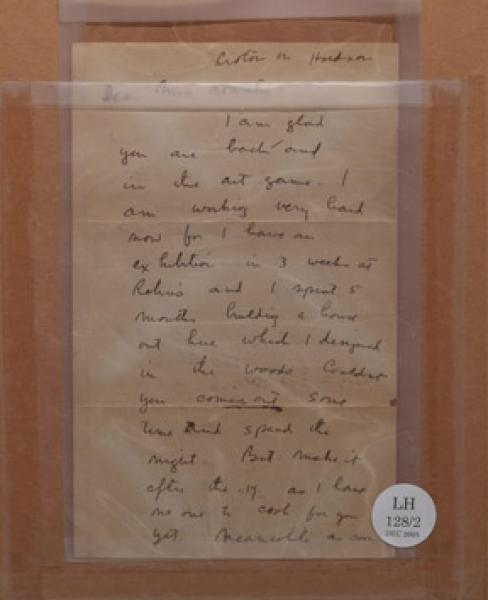 Croton on Hudson
Dear Miss
I am glad
you are back and
in the art game. I
am working very hard
now for I have an
exhibition in 3 weeks at
and I spent 5
months building a house
out here which I designed
in the woods Couldnt
you coming out some
time and spend the
night. But make it
after the 19. as I have
no one to cook for you
yet. Meanwhile as soon
LH
128/2
DEC 2005